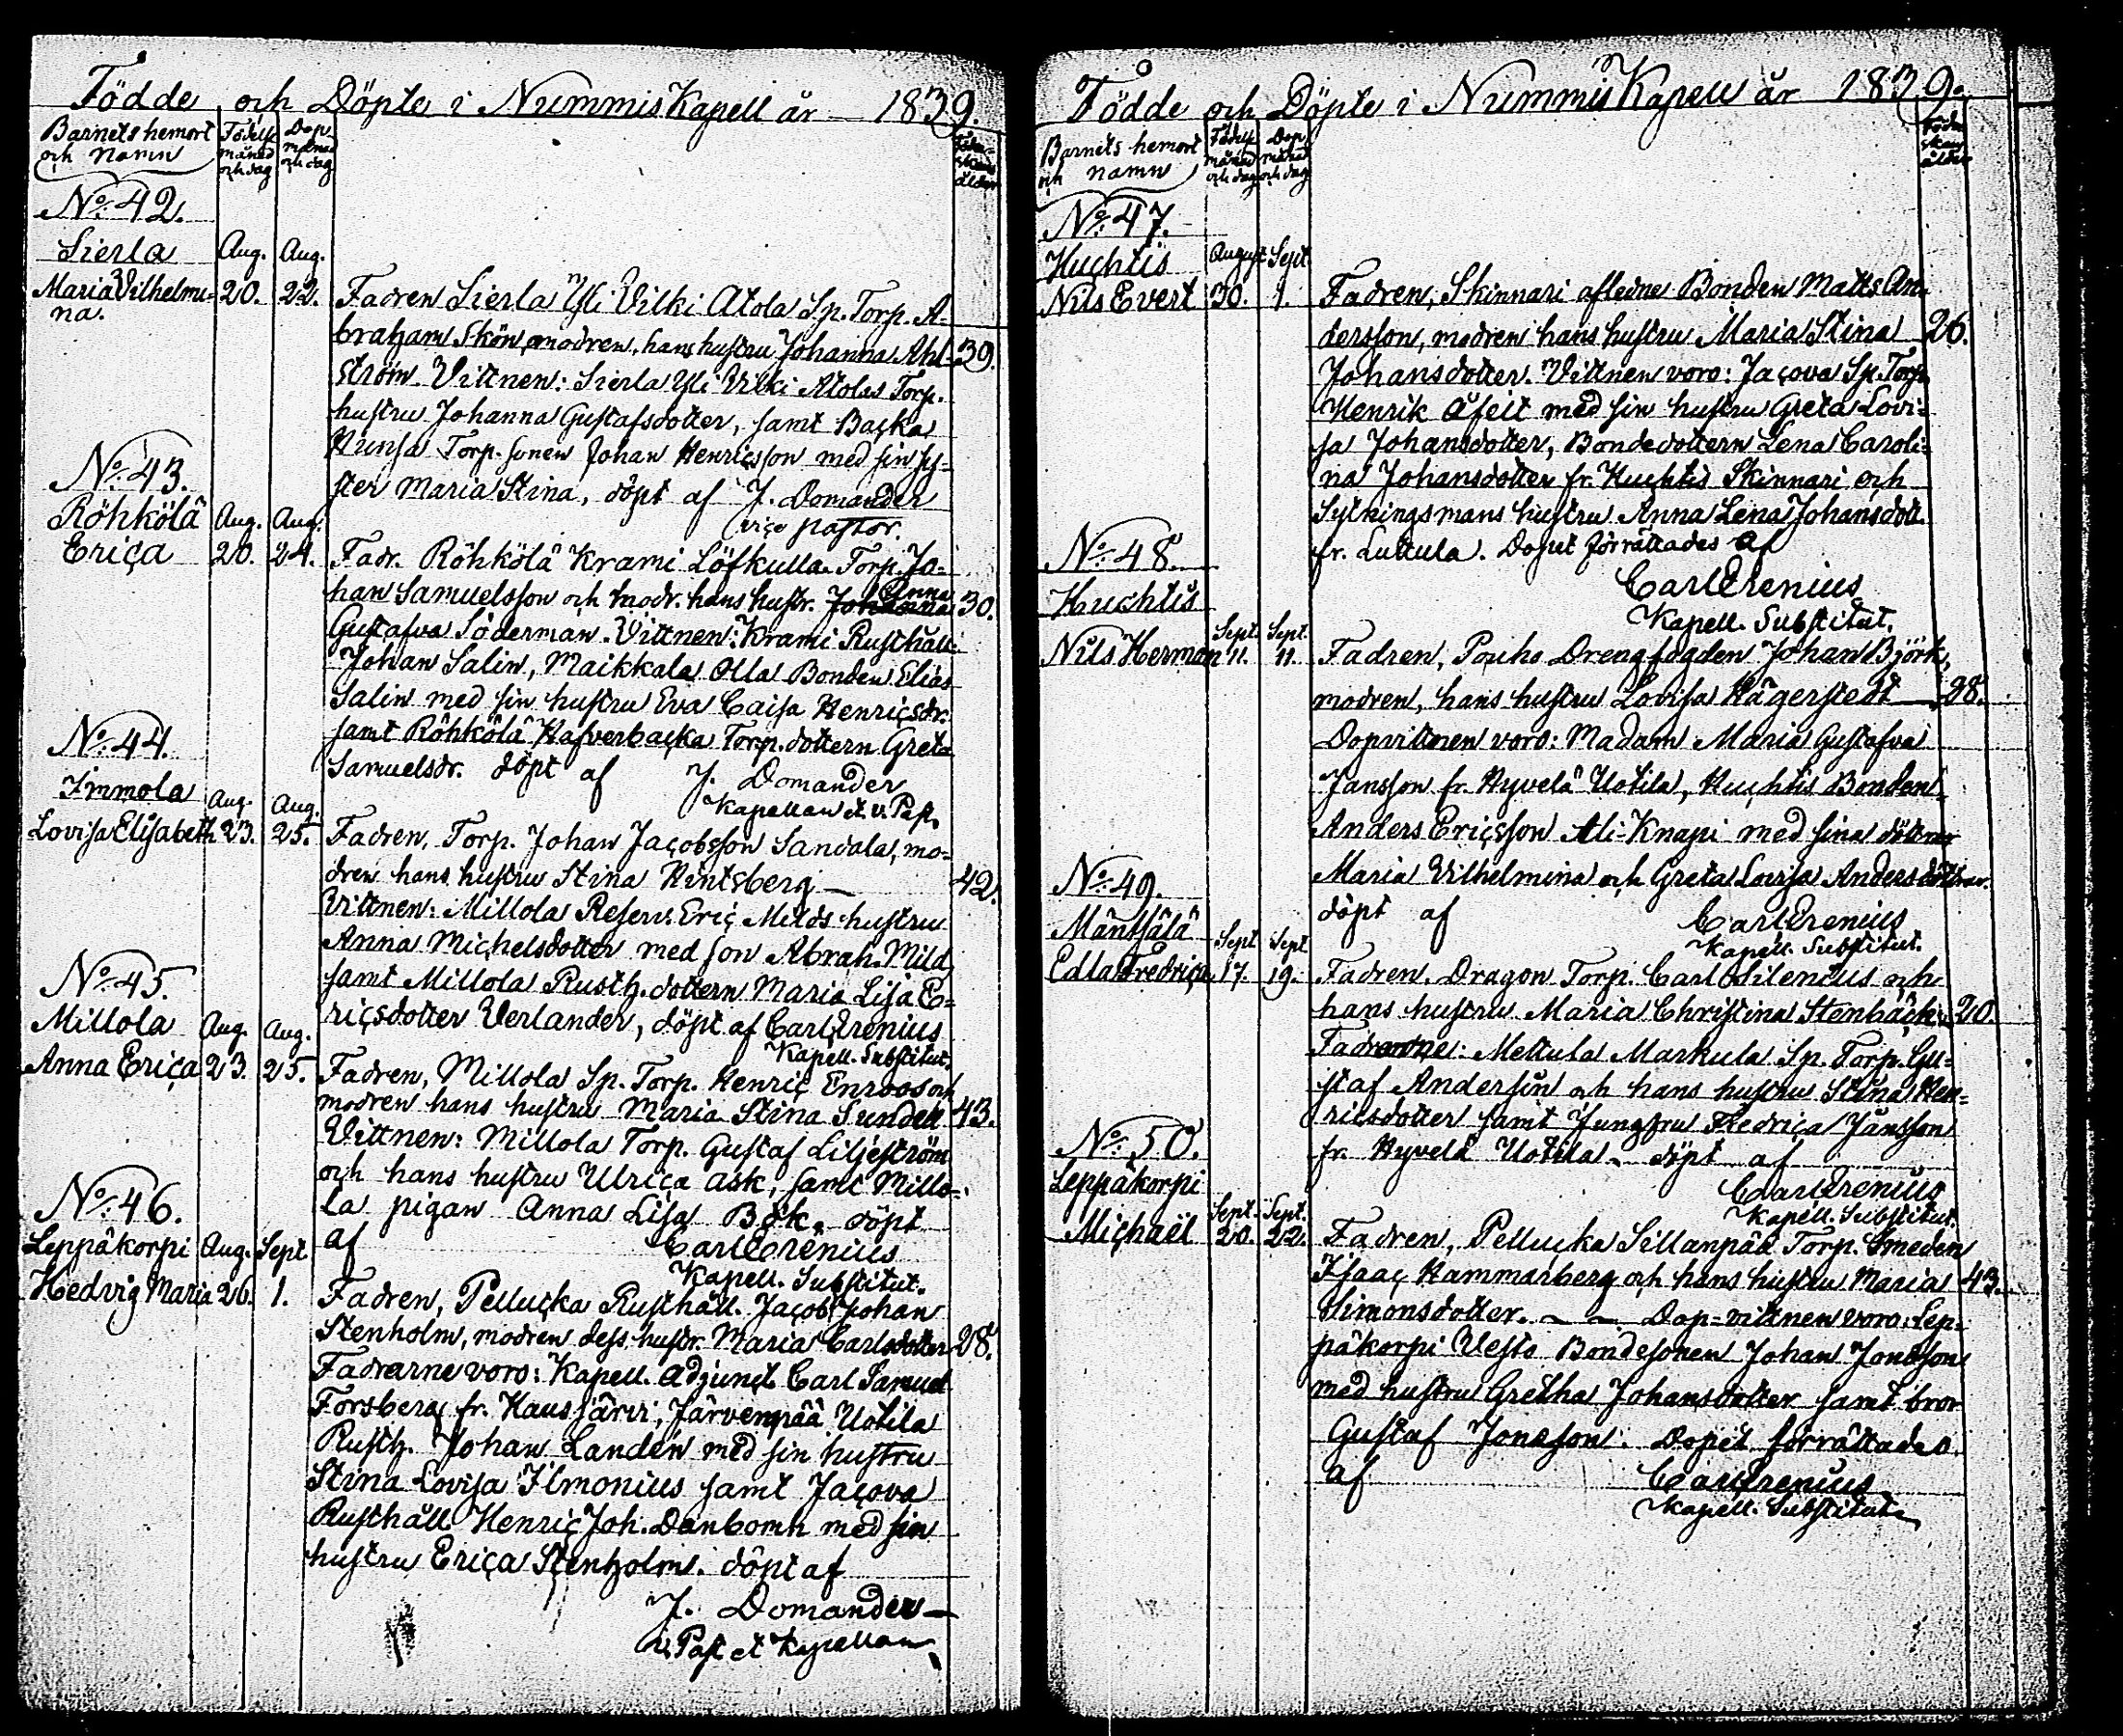 Födde och Döpte i Nummis Kapell år 1839.
Barnets hemort och Namn
Födelse månad och dag
Dop månad och dag
Föder-skans ålder
No. 42.
Sierla Aug. Aug.
Maria Vilhelmi- 20. 22. Fadren Sierla Yli Vilki Atola Sp. Torp. A-
na.
braham Skön, modren, hans hustru Johanna Ahl- 39.
ström. Vittnen: Sierla Yli Vilki Atolas Torp.
hustru Johanna Gustafsdotter, samt Backa
Hunsa Torp. sonen Johan Henricsson med sin sy-
ster Maria Stina, döpt af J. Domander
vice pastor.
No. 43.
Röhkölä Aug. Aug.
Erica 20. 24. Fadr. Röhkölä Krami Löfkulla Torp. Jo-
han Samuelsson och modr. hans hustr. Johanna Anna 30.
Gustafva Söderman. Vittnen: Krami Rusthåll.
Johan Salin, Maikkala Olla Bonden Elias
Salin med sin hustru Eva Caisa Henricsdr.
samt Röhkölä Hafverbacka Torp. dottern Greta
Samuelsdr. döpt af J. Domander
Kapellan et v. Past.
No. 44.
Immola Aug. Aug.
Lovisa Elisabeth 23. 25. Fadren, Torp. Johan Jacobsson Sandala, mo-
dren hans hustru Stina Hintsberg — 42.
Vittnen: Millola Reserv. Eric Milds hustru
Anna Michelsdotter med son Abrah. Mild
samt Millola Rusth. dottern Maria Lisa E-
ricsdotter Verlander, döpt af Carl Grenius
Kapell. Substitut.
No. 45.
Millola Aug. Aug.
Anna Erica 23. 25. Fadren, Millola Sp. Torp. Henric Enroos och
modren hans hustru Maria Stina Sundell 43.
Vittnen: Millola Torp. Gustaf Liljeström
och hans hustru Ulrica Ask, samt Millo-
la pigan Anna Lisa Bök. döpt
af Carl Grenius
Kapell. Substitut.
No. 46.
Leppäkorpi Aug. Sept.
Hedvig Maria 26. 1. Fadren, Pellucka Rusthåll. Jacob Johan
Stenholm, modren dess hustr. Maria Carlsdotter 28.
Fadrarne voro: Kapell. Adjunct Carl Samuel
Forsberg fr. Hausjärvi, Järvenpää Uotila
Rusth. Johan Landén med sin hustru
Stina Lovisa Ilmonius samt Jacova
Rusthåll Henric Joh. Danbom med sin
hustru Erica Stenholm. döpt af
J. Domander—
v. Past et Kapellan
Födde och Döpte i Nummis Kapell år 1839.
Barnets hemort och namn
Födelse månad och dag
Dop månad och dag
Föder skans ålder
No. 47.
Huchtis August Sept.
Nils Evert 30. 1. Fadren, Skinnari afledne Bonden Matts An-
dersson, modren hans hustru Maria Stina 26.
Johansdotter. Vittnen voro: Jacova Sp. Torp.
Henrik Åfeit med sin hustru Greta Lovi-
sa Johansdotter, Bondedottern Lena Caroli-
na Johansdotter fr. Huchtis Skinnari och
Sytningsmans hustru Anna Lena Johansdott.
fr. Luttula. Dopet förrättades af
Carl Grenius
Kapell. Substitut.
No. 48.
Huchtis
Sept. Sept.
Nils Herman 11. 11. Fadren, Pouho Drengfogden Johan Björk,
modren, hans hustru Lovisa Hägerstedt — 28.
Dopvittnen voro: Madam Maria Gustafva
Jansson fr. Hyvelä Uotila, Huchtis Bonden
Anders Ericsson Ali-Knapi med sina döttrar
Maria Vilhelmina och Greta Lovisa Andersdöttrar.
döpt af Carl Grenius
Kapell. Substitut.
No. 49.
Mäntsälä Sept Sept
Edla Fredrica 17. 19. Fadren, Dragon Torp. Carl Silenius och
hans hustru Maria Christina Stenbäck 20.
Fadrarne: Mettula Markula Sp. Torp. Gu-
staf Andersin och hans hustru Stina Hen-
ricsdotter samt Jungfru Fredrica Jansson
fr. Hyvelä Uotila. döpt af
Carl Grenius
Kapell. Substitut.
No. 50.
Leppäkorpi
Sept. Sept.
Michaël 20. 22. Fadren, Pellucka Sillanpää Torp. Smeden
Isaac Hammarberg och hans hustru Maria 43.
Simonsdotter. — — Dop-vittnen voro: Lep-
päkorpi Vesto Bondesonen Johan Jonasson
med hustru Gretha Johansdotter samt bror
Gustaf Jonasson. Dopet förrättades
af Carl Grenius
Kapell. Substitut.